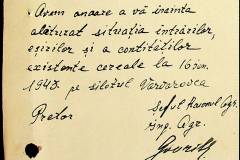 Avem onoare a vă înainta
alăturat situația intrărilor,
eșirilor și a cantităților
existente cereale la 16 Iun.
1943 pe silozul Varvarovca
Pretor Șeful Raionul Agr.
Ing. Agr.